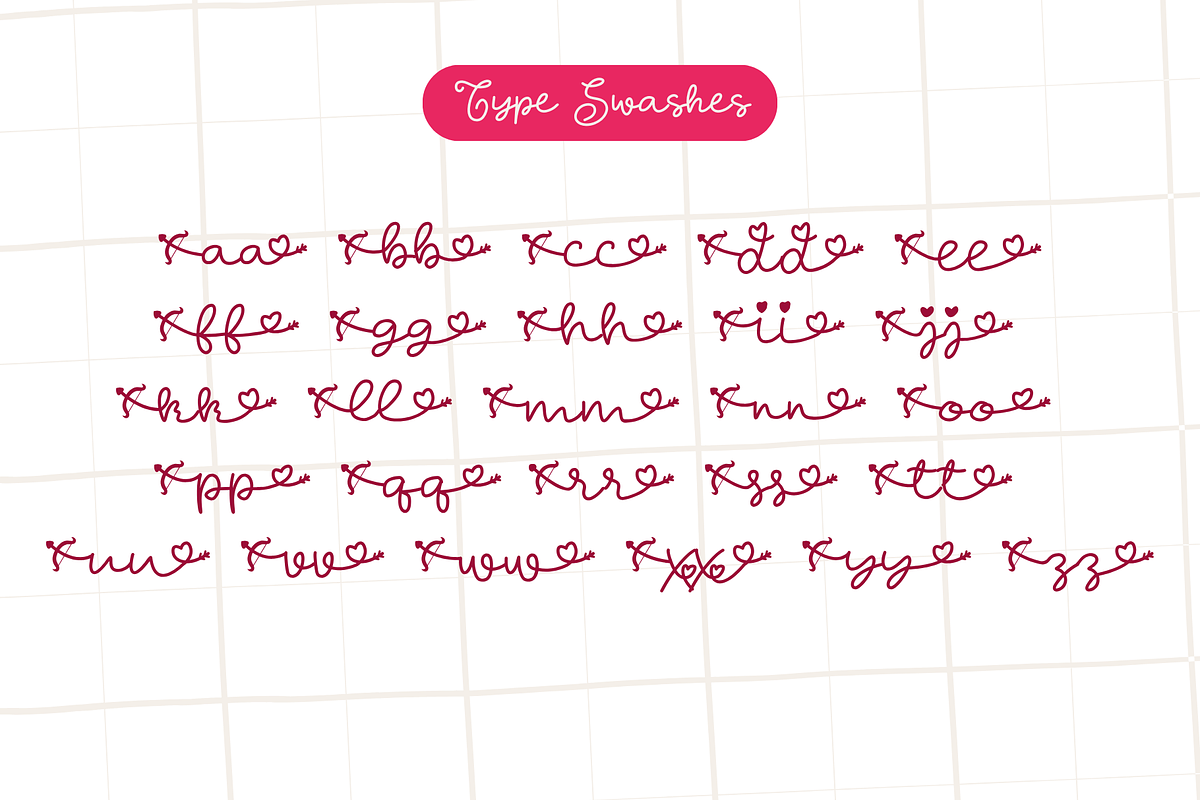 Type Swashes
aa bb cc dd ee
ff gg hh ii jj
kk ll mm nn oo
pp qq rr ss tt
uu vv ww xx yy zz